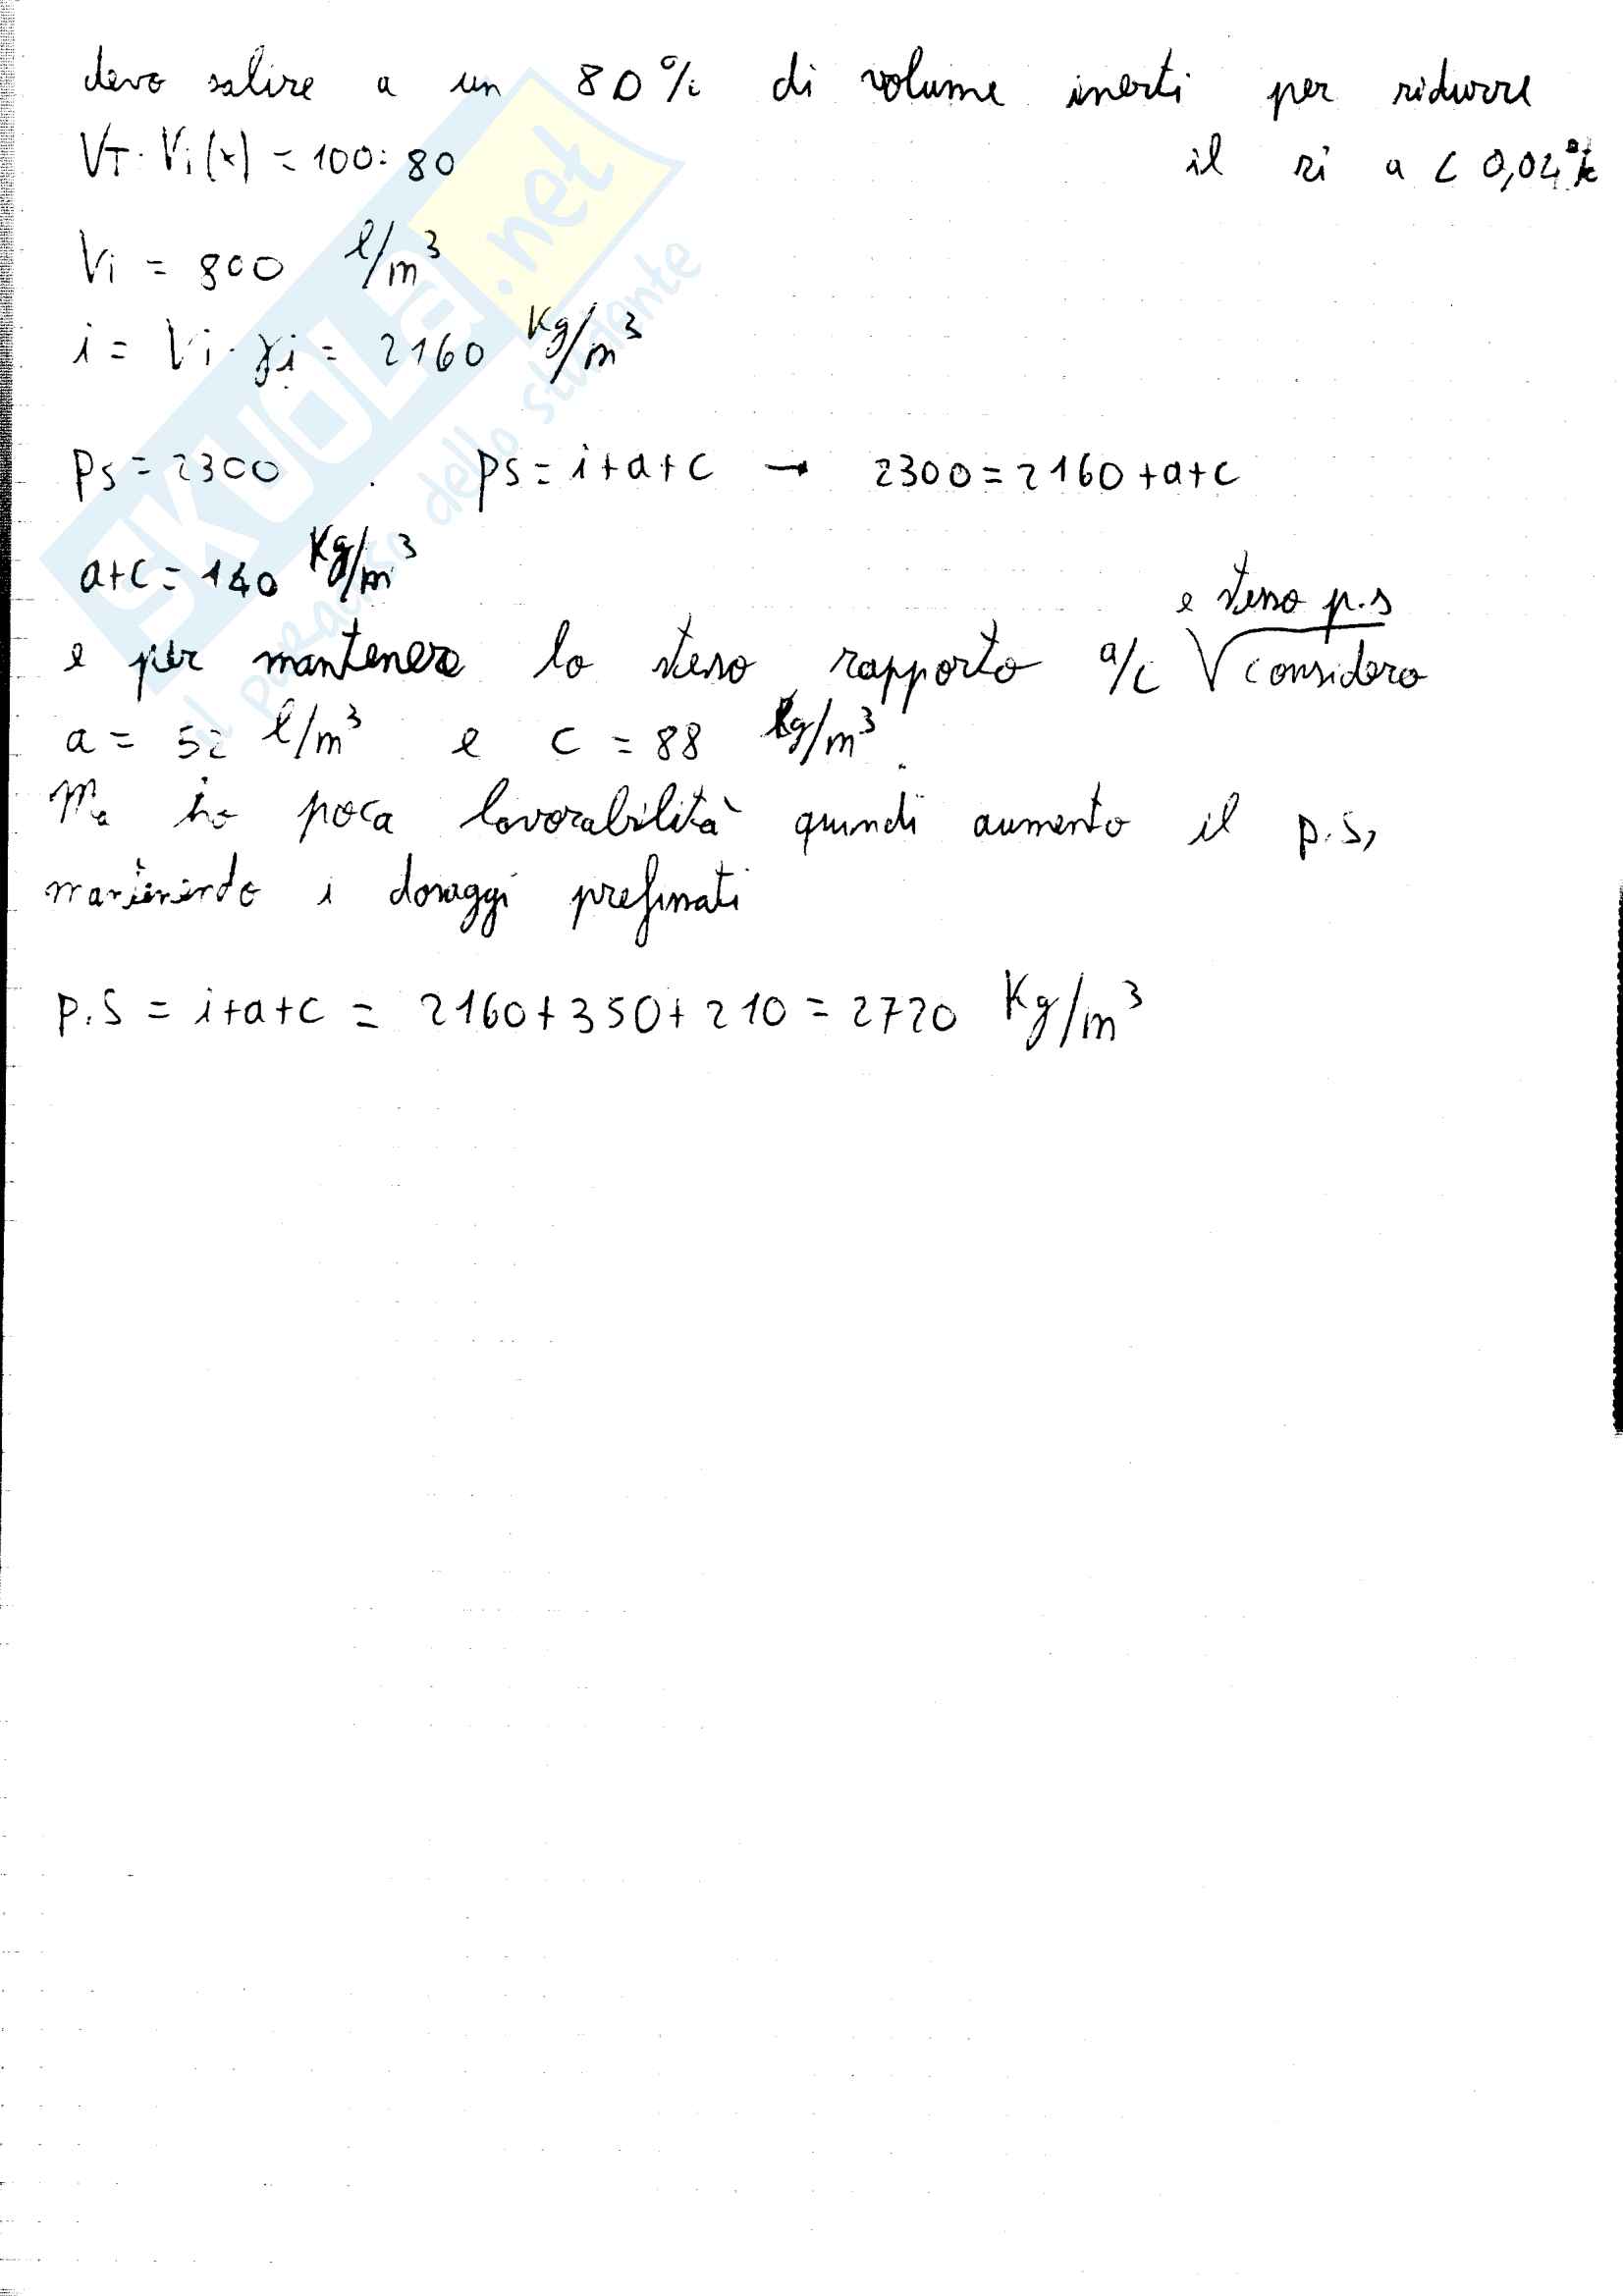 devo salire a un 80% di volume inerti per ridurre
il ri a < 0,04%
VT : Vi(x) = 100 : 80
Vi = 800 l/m³
i = Vi · γi = 2160 Kg/m³
ps = 2300 ps = i+a+c → 2300 = 2160 +a+c
a+c = 140 Kg/m³
e per mantenere lo stesso rapporto a/c √ e stesso p.s considero
a = 52 l/m³ e c = 88 kg/m³.
Ma ho poca lavorabilità quindi aumento il p.s,
mantenendo i dosaggi prefissati
p.s = i+a+c = 2160+350+210 = 2720 Kg/m³
SKUOLA.net
il paradiso dello studente